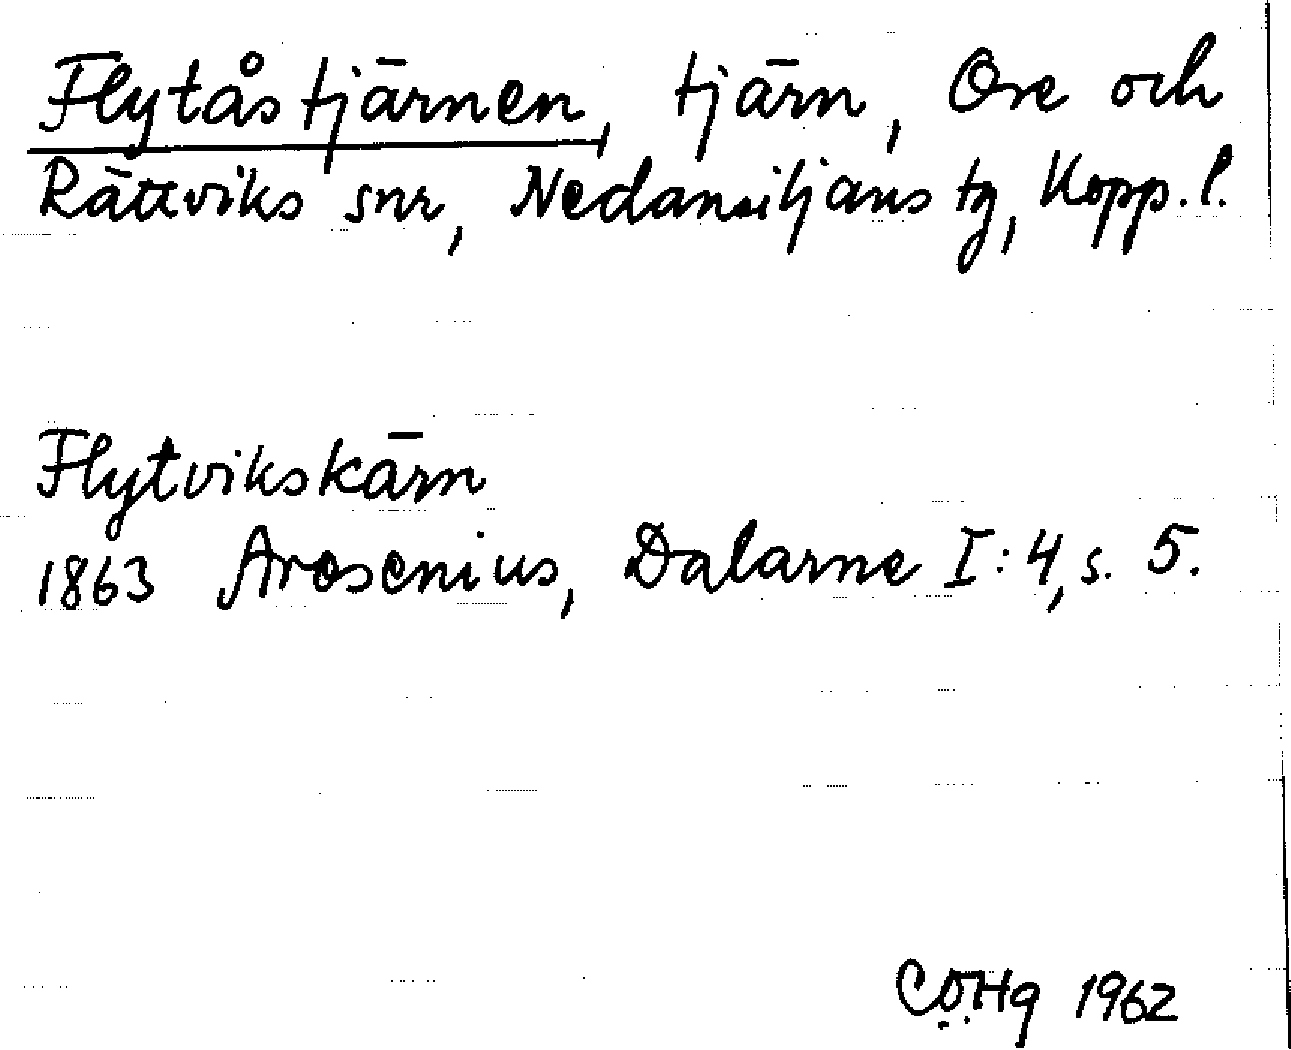 Flytåstjärnen, tjärn, Ore och
Rättviks snr, Nedansiljans tg, Kopp. l.
Flytvikskärn
1863 Arosenius, Dalarne I:4, s. 5.
CÖHg 1962